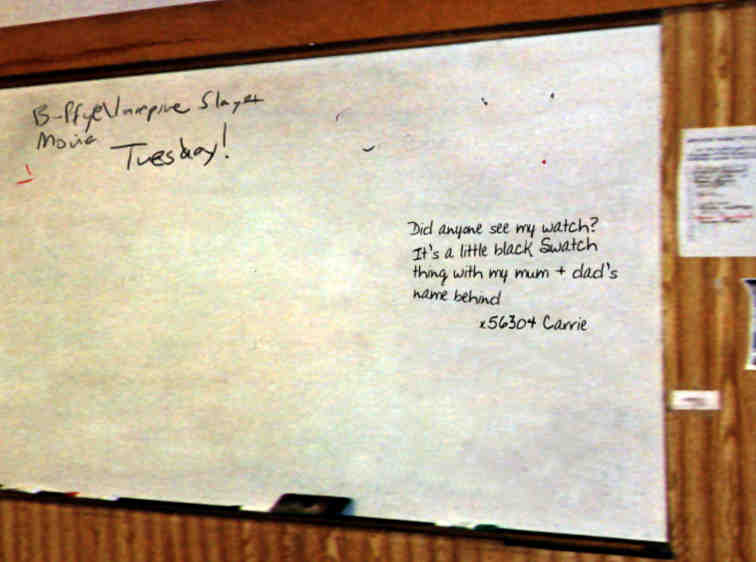 B-Pfye Vampire Slayer
Movie
Tuesday!
Did anyone see my watch?
It's a little black Swatch
thing with my mum + dad's
name behind
x56304 Carrie